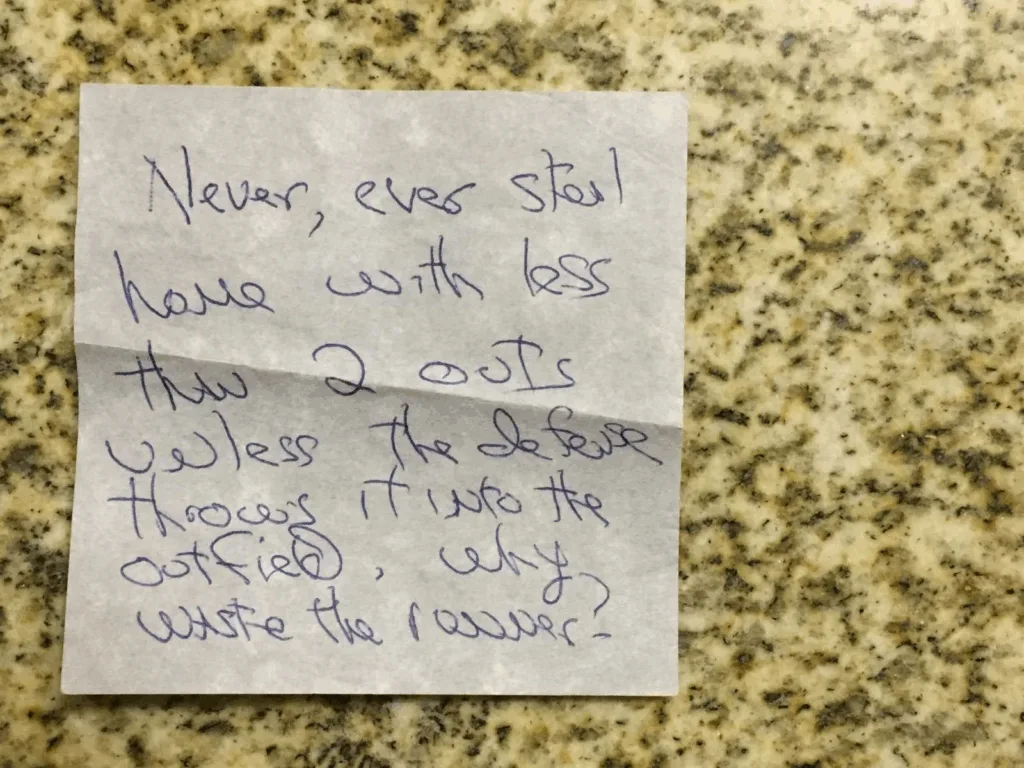 Never, ever steal
home with less
than 2 outs
unless the defense
throws it into the
outfield, why
waste the runner?